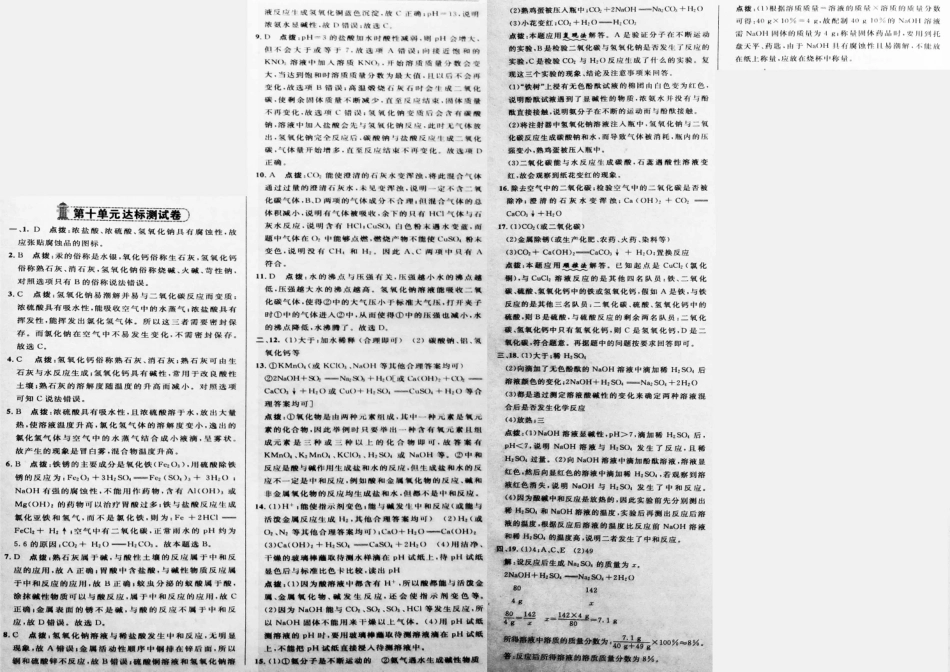 第十单元达标测试卷
一、1. D 点拨:浓盐酸、浓硫酸、氢氧化钠具有腐蚀性,故
应张贴腐蚀品的图标。
2. B 点拨:汞的俗称是水银,氧化钙俗称生石灰,氢氧化钙
俗称熟石灰、消石灰,氢氧化钠俗称烧碱、火碱、苛性钠,
对照选项只有 B 的俗称说法错误。
3. C 点拨:氢氧化钠易潮解并易与二氧化碳反应而变质;
浓硫酸具有吸水性,能吸收空气中的水蒸气;浓盐酸具有
挥发性,能挥发出氯化氢气体。所以这三者需要密封保
存。而氯化钠在空气中不易发生变化,不需密封保存。
故选 C。
4. C 点拨:氢氧化钙俗称熟石灰、消石灰;熟石灰可由生
石灰与水反应生成;氢氧化钙具有碱性,常用于改良酸性
土壤;熟石灰的溶解度随温度的升高而减小。对照选项
可知 C 说法错误。
5. B 点拨:浓硫酸具有吸水性,且浓硫酸溶于水,放出大量
热,使溶液温度升高,氯化氢气体的溶解度变小,逸出的
氯化氢气体与空气中的水蒸气结合成小液滴,呈雾状。
故产生的现象是冒白雾,混合物温度升高。
6. B 点拨:铁锈的主要成分是氧化铁(Fe₂O₃),用硫酸除铁
锈的反应为:Fe₂O₃+3H₂SO₄══Fe₂(SO₄)₃+3H₂O;
NaOH 有强的腐蚀性,不能用作药物,含有 Al(OH)₃ 或
Mg(OH)₂ 的药物可以治疗胃酸过多;铁与盐酸反应生成
氯化亚铁和氢气,而不是氯化铁,则为:Fe+2HCl══
FeCl₂+H₂↑;空气中有二氧化碳,正常雨水的 pH 约为
5.6 的原因:CO₂+H₂O══H₂CO₃。故本题选 B。
7. D 点拨:熟石灰属于碱,与酸性土壤的反应属于中和反
应的应用,故 A 正确;胃酸中含盐酸,与碱性物质反应属
于中和反应的应用,故 B 正确;蚊虫分泌的蚁酸属于酸,
涂抹碱性物质可以与酸反应,属于中和反应的应用,故 C
正确;金属表面的锈不是碱,与酸的反应不属于中和反
应,故 D 错误。故选 D。
8. C 点拨:氢氧化钠溶液与稀盐酸发生中和反应,无明显
现象,故 A 错误;金属活动性顺序中铜排在锌后面,所以
铜和硫酸锌不反应,故 B 错误;硫酸铜溶液和氢氧化钠溶
液反应生成氢氧化铜蓝色沉淀,故 C 正确;pH=13,说明
浓氨水显碱性,故 D 错误;故选 C。
9. D 点拨:pH=3 的盐酸加水时酸性减弱,则 pH 会增大,
但不会大于或等于 7,故选项 A 错误;向接近饱和的
KNO₃ 溶液中加入溶质 KNO₃,开始溶质质量分数会变
大,当达到饱和时溶质质量分数为最大值,且以后不会再
变化,故选项 B 错误;高温煅烧石灰石时会生成二氧化
碳,使剩余固体质量不断减少,直至反应结束,固体质量
不再变化,故选项 C 错误;氢氧化钠变质后会含有碳酸
钠,溶液中加入盐酸会先与氢氧化钠反应,此时无气体放
出,氢氧化钠完全反应后,碳酸钠与盐酸反应生成二氧化
碳,气体量开始增多,直至反应结束不再变化。故选项 D
正确。
10. A 点拨:CO₂ 能使澄清的石灰水变浑浊,将此混合气体
通过过量的澄清石灰水,未见变浑浊,说明一定不含二氧
化碳气体,B、D 两项的气体成分不合理;但混合气体的总
体积减小,说明有气体被吸收,余下的只有 HCl 气体与石
灰水反应,说明含有 HCl;CuSO₄ 白色粉末遇水变蓝,而
题中气体在 O₂ 中能够点燃,燃烧产物不能使 CuSO₄ 粉末
变色,说明没有 CH₄ 和 H₂。因此 A、C 两项中只有 A
符合。
11. D 点拨:水的沸点与压强有关,压强越小水的沸点越
低,压强越大水的沸点越高。氢氧化钠溶液能吸收二氧
化碳气体,使得②中的大气压小于标准大气压,打开夹子
时①中的气体进入②中,从而使得①中的压强也减小,水
的沸点降低,水沸腾了。故选 D。
二、12. (1)大于;加水稀释(合理即可) (2)碳酸钠、铝、氢
氧化钙等
13. ①KMnO₄(或 KClO₃、NaOH 等其他合理答案均可)
②2NaOH+SO₂══Na₂SO₃+H₂O[或 Ca(OH)₂+CO₂══
CaCO₃↓+H₂O 或 CuO+H₂SO₄══CuSO₄+H₂O 等合
理答案均可]
点拨:①氧化物是由两种元素组成,其中一种元素是氧元
素的化合物,因此举例时只要举出一种含有氧元素且组
成元素是三种或三种以上的化合物即可,故答案有
KMnO₄、K₂MnO₄、KClO₃、H₂SO₄ 或 NaOH 等。②中和
反应是酸与碱作用生成盐和水的反应,但生成盐和水的反
应不一定是中和反应,例如酸和金属氧化物的反应、碱和
非金属氧化物的反应均生成盐和水,但都不是中和反应。
14. (1)H⁺;能使指示剂变色;能与碱发生中和反应(或能与
活泼金属反应生成 H₂,其他合理答案均可) (2)H₂(或
O₂、N₂ 等其他合理答案均可);CaO+H₂O══Ca(OH)₂
(3)Ca(OH)₂+H₂SO₄══CaSO₄+2H₂O (4)用洁净、
干燥的玻璃棒蘸取待测水样滴在 pH 试纸上,待 pH 试纸
显色后与标准比色卡比较,读出 pH
点拨:(1)因为酸溶液中都含有 H⁺,所以酸都能与活泼金
属、金属氧化物、碱发生反应,还会使指示剂变色等。
(2)因为 NaOH 能与 CO₂、SO₂、SO₃、HCl 等发生反应,所
以 NaOH 固体不能用来干燥以上气体。(4)用 pH 试纸
测溶液的 pH 时,要用玻璃棒蘸取待测溶液滴在 pH 试纸
上,不能把 pH 试纸直接浸入待测溶液中。
15. (1)①氨分子是不断运动的 ②氨气遇水生成碱性物质
(2)熟鸡蛋被压入瓶中;CO₂+2NaOH══Na₂CO₃+H₂O
(3)小花变红;CO₂+H₂O══H₂CO₃
点拨:本题应用复现法解答。A 是验证分子在不断运动
的实验,B 是检验二氧化碳与氢氧化钠是否发生了反应的
实验,C 是检验 CO₂ 与 H₂O 反应生成了什么的实验。复
现这三个实验的现象、结论及注意事项来回答。
(1)“铁树”上浸有无色酚酞试液的棉团由白色变为红色,
说明酚酞试液遇到了显碱性的物质,浓氨水并没有与酚
酞直接接触,说明氨分子在不断的运动而与酚酞接触。
(2)将注射器中氢氧化钠溶液注入瓶中,氢氧化钠与二氧
化碳反应生成碳酸钠和水,而导致气体被消耗,瓶内的压
强变小,熟鸡蛋被压入瓶中。
(3)二氧化碳能与水反应生成碳酸,石蕊遇酸性溶液变
红,故会观察到纸花变红的现象。
16. 除去空气中的二氧化碳;检验空气中的二氧化碳是否被
除净;澄清的石灰水变浑浊;Ca(OH)₂+CO₂══
CaCO₃↓+H₂O
17. (1)CO₂(或二氧化碳)
(2)金属除锈(或生产化肥、农药、火药、染料等)
(3)CO₂+Ca(OH)₂══CaCO₃↓+H₂O;置换反应
点拨:本题应用顺推法解答。已知起点是 CuCl₂(氯化
铜),与 CuCl₂ 溶液反应的是其他四名队员:铁、二氧化
碳、硫酸、氢氧化钙中的铁或氢氧化钙,假如 A 是铁,与铁
反应的是其他三名队员:二氧化碳、硫酸、氢氧化钙中的
硫酸,则 B 是硫酸、与硫酸反应的剩余两名队员:二氧化
碳、氢氧化钙中只有氢氧化钙,则 C 是氢氧化钙,D 是二
氧化碳,符合题意。再据题中的问题按要求回答即可。
三、18. (1)大于;稀 H₂SO₄
(2)向滴加了无色酚酞的 NaOH 溶液中滴加稀 H₂SO₄ 后
溶液颜色的变化;2NaOH+H₂SO₄══Na₂SO₄+2H₂O
(3)都是通过测定溶液酸碱性的变化来确定两种溶液混
合后是否发生化学反应
(4)放热;三
点拨:(1)NaOH 溶液显碱性,pH>7,滴加稀 H₂SO₄ 后,
pH<7,说明 NaOH 溶液与 H₂SO₄ 发生了反应,且稀
H₂SO₄ 过量。(2)向 NaOH 溶液中滴加酚酞溶液,溶液显
红色,然后向显红色的溶液中滴加稀 H₂SO₄,若观察到溶
液红色消失,说明 NaOH 与 H₂SO₄ 发生了中和反应。
(4)因为酸碱中和反应是放热的,因此实验前先分别测出
稀 H₂SO₄ 和 NaOH 溶液的温度,实验后再测出反应后溶
液的温度,根据反应后溶液的温度比反应前 NaOH 溶液
和稀 H₂SO₄ 的温度高,说明二者发生了中和反应。
四、19. (1)4;A、C、E (2)49
解:设反应后生成 Na₂SO₄ 的质量为 x。
2NaOH+H₂SO₄══Na₂SO₄+2H₂O
80 142
4 g x
80/4 g=142/x x=142×4 g/80=7.1 g
所得溶液中溶质的质量分数为:7.1 g/(40 g+49 g)×100%≈8%。
答:反应后所得溶液的溶质质量分数为 8%。
点拨:(1)根据溶质质量=溶液的质量×溶质的质量分数
可得:40 g×10%=4 g,故配制 40 g 10%的 NaOH 溶液
需 NaOH 固体的质量为 4 g;称量固体药品时,要用到托
盘天平、药匙,由于 NaOH 具有腐蚀性且易潮解,不能放
在纸上称量,应放在烧杯中称量。